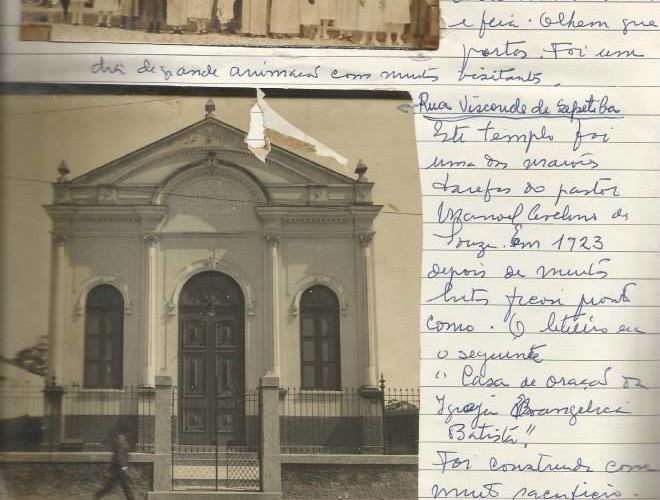 e feia. Olhem que
portas. Foi um
dia de grande animação com muitos visitantes.
Rua Visconde de Sepetiba
Este templo foi
uma das maiores
tarefas do pastor
Manoel Avelino de
Souza. Em 1723
depois de muitas
lutas ficou pronto
como. O letreiro era
o seguinte
"Casa de oração da
Igreja Evangelica
Batista."
Foi construida com
muito sacrificio.